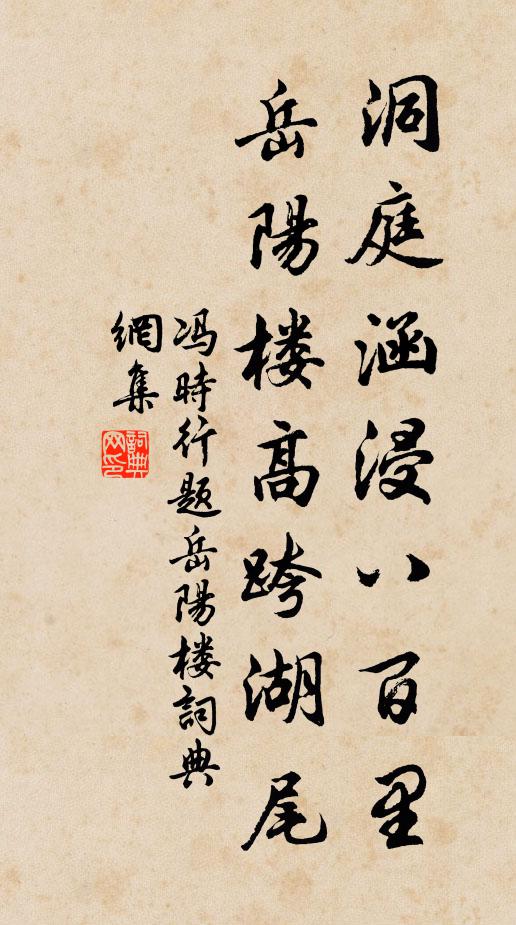 洞庭涵浸八百里
岳陽楼高跨湖尾
冯時行题岳陽楼詞典
網集
詞典
网印